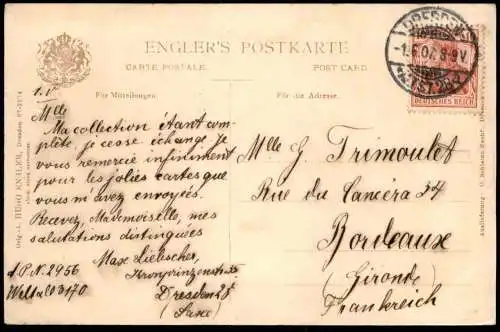 ENGLER'S POSTKARTE
CARTE POSTALE.
POST CARD.
DRESDEN
-1.6.07. 8-9V
DEUTSCHES REICH
Für Mitteilungen.
Für die Adresse.
Mlle
Ma collection étant com-
plète, je cesse échange. Je
vous remercie infiniment
pour les jolies cartes que
vous m'avez envoyées.
Recevez, Mademoiselle, mes
salutations distinguées
Max Liebscher,
Kronprinzenstr.
Dresden 28
(Saxe)
d.P.N. 2956
3170
Mlle G. Trimoulet
Rue du Cancéra 34
Bordeaux
(Gironde)
Frankreich
HUGO ENGLER, Dresden
Auslieferung